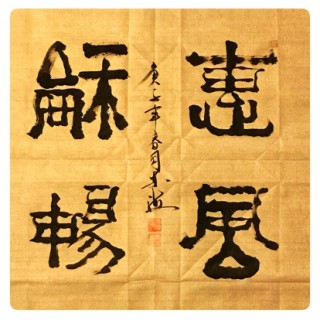 惠風
龢暢
庚子年春月